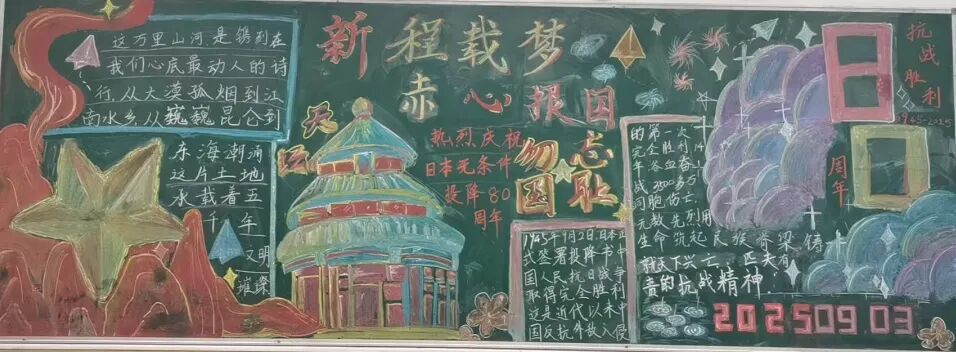 新程载梦
赤心报国
这万里山河,是镌刻在
我们心底最动人的诗
行,从大漠孤烟到江
南水乡,从巍巍昆仑到
东海潮涌
这片土地
承载着五
千年
文明
璀璨
天坛
热烈庆祝
日本无条件
投降80
周年
勿忘
国耻
1945年9月2日日本正
式签署投降书,中
国人民抗日战争
取得完全胜利
这是近代以来中
国反抗外敌入侵
的第一次
完全胜利
元教先烈用
生命筑起民族脊梁,铸
就天下兴亡,匹夫有
责的抗战精神.
80
抗战胜利
1945-2025
周年
20250903